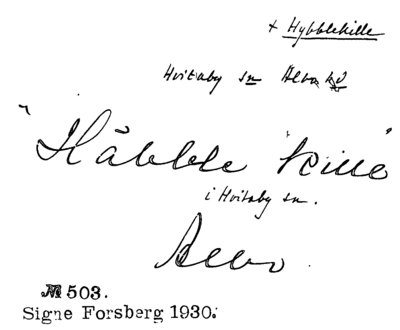 + Hybblekille
Hvitaby sn Albo hd
"Häbble kille"
i Hvitaby sn.
Albo.
№ 503.
Signe Forsberg 1930.